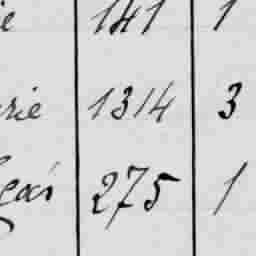 ie 141 1
rie 1314 3
gás 275 1